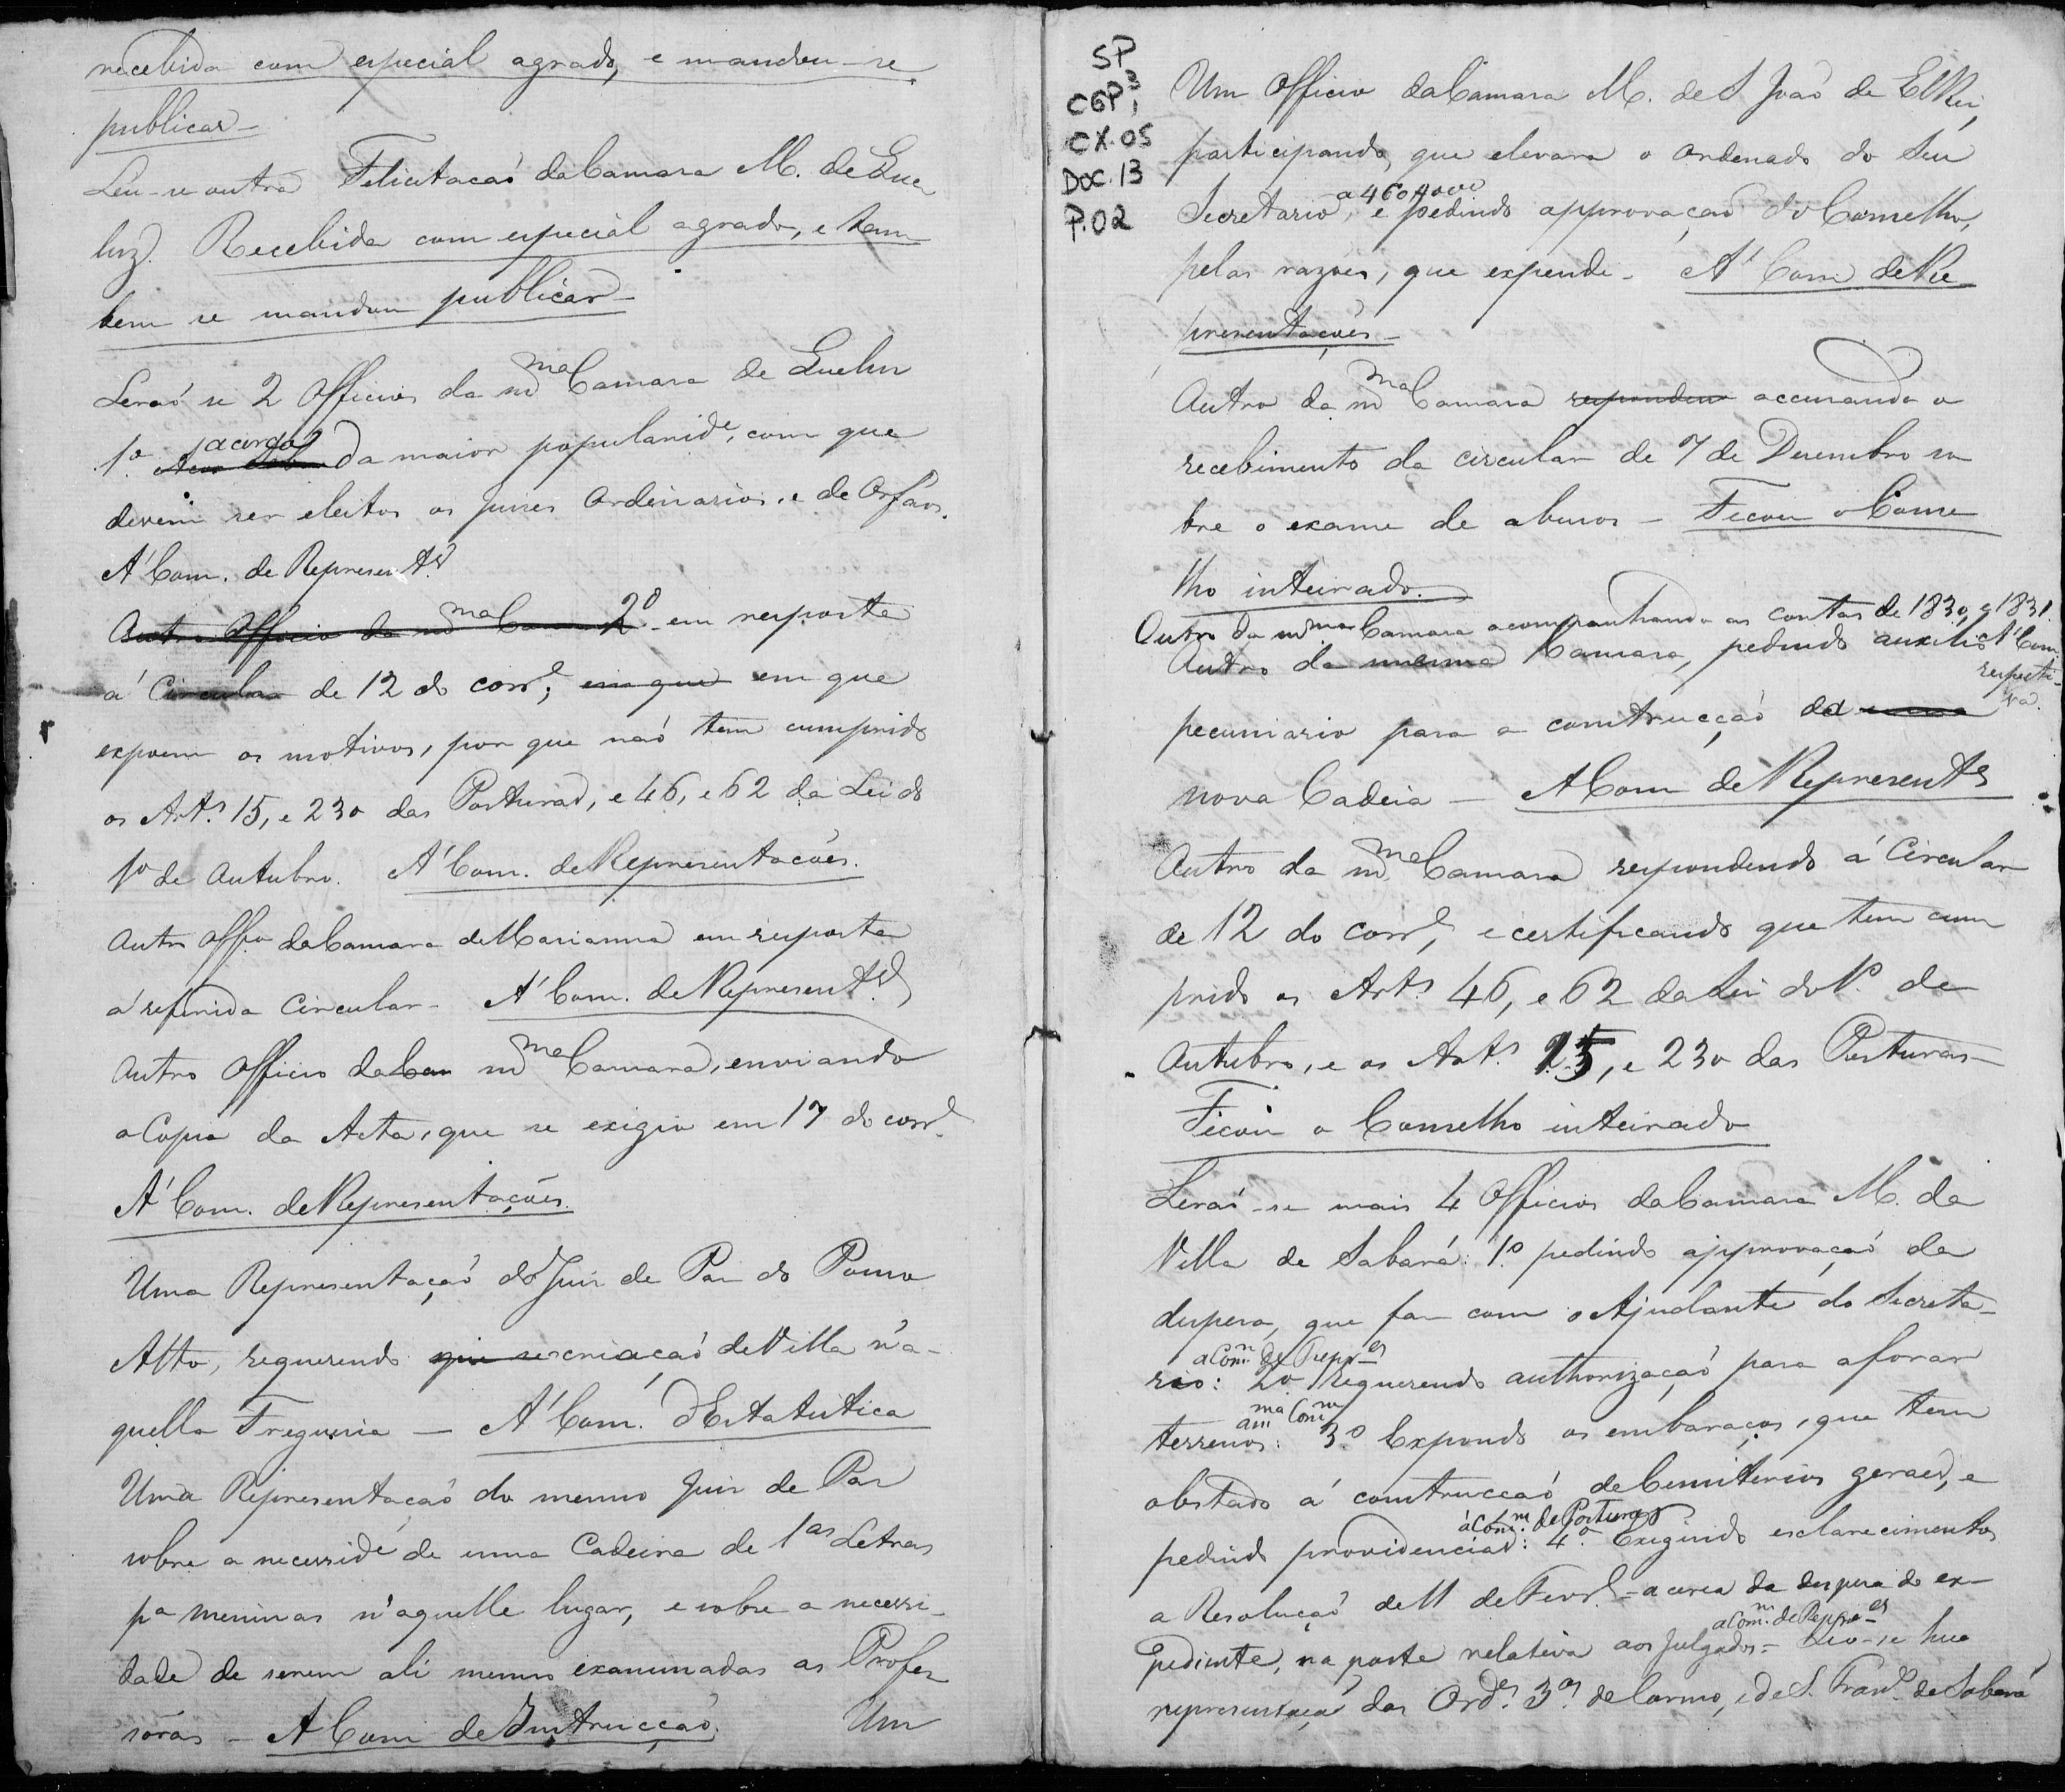 recebida com especial agrado, e mandou-se
publicar-
Leu-se outra Felicitaçaõ da Camara M. de Que
luz. Recebida com especial agrado, e tam
bem se mandou publicar-
Leraõ se 2 Officios da m.ma Camara de Queluz
1.º acerca da maior popularid.e, com que
devem ser eleitos os Juises Ordinarios, e de Orfaõs.
A' Com. de Represent.es
Outro Officio da m.ma Cam 2º em resposta
á Circular de 12 do corr.e, em que em que
expoem os motivos, por que naõ tem cumprido
os Art.s 15, e 230 das Posturas, e 46, e 62 da Lei do
1º de Outubro. A' Com. de Representaçoẽs.
Outro Offo da Camara de Marianna em resposta
á referida Circular- A' Com. de Represent.es
Outro Officio da Cam m.ma Camara, enviando
a Copia da Acta, que se exigio em 17 do corr.e
A' Com. de Representaçoẽs.
Uma Representaçaõ do Juiz de Paz do Pomo
Alto, requerendo que se criaçaõ de Villa n'a-
quella Freguesia - A' Com. d'Estatistica
Uma Representaçaõ do mesmo Juiz de Paz
sobre a necessid.e de uma Cadeira de 1as Letras
pa meninas n'aquelle lugar, e sobre a necessi-
dade de serem ali mesmo examinadas as Profes
soras - A Com. de Instrucçaõ.
Um
SP
CGP3,
CX.05
DOC.13
P.02
Um Officio da Camara M. de S Joaõ de ElRei,
participando, que elevara o Ordenado do Seu
a 460$000
Secretario, e pedindo approvaçaõ do Conselho,
pelas razoẽs, que expende - A' Com de Re
presentaçoẽs-
Outro da m.ma Camara respondeu accusando o
recebimento da circular de 7 de Dezembro so
bre o exame de abusos - Ficou o Conse
lho inteirado.
Outro da m.ma Camara acompanhando as contas de 1830, e 1831.
A' Com. respecti-
va.
Outro da mesma Camara, pedindo auxilio
pecuniario para a construcçaõ da uma
nova Cadeia - A Com de Represent.es
Outro da m.ma Camara respondendo á Circular
de 12 do corr.e, e certificando que tem cum
prido os Art.s 46, e 62 da Lei do 1º de
Outubro, e os Art.s 15, e 230 das Posturas-
Ficou o Conselho inteirado
Leraõ-se mais 4 Officios da Camara M. da
Villa de Sabará: 1º pedindo approvaçaõ da
despesa, que faz com o Ajudante do Secreta-
a Com.m de Repr.es
rio: 2º requerendo authorizaçaõ para aforar
a m.ma Com.m
terrenos: 3.º Expondo os embaraços, que tem
obstado á construcçaõ de Cemiterios geraes, e
á Com.m de Posturas
pedindo providencias: 4.º Exigindo esclarecimentos
a Resoluçaõ de 11 de Fevr.o - acerca da despesa do ex-
a Com.m de Repr.es
pediente, na parte relativa aos Julgados- Leo-se hua
representaçaõ das Ord.s 3.as do Carmo, e de S. Fran.co de Sabará